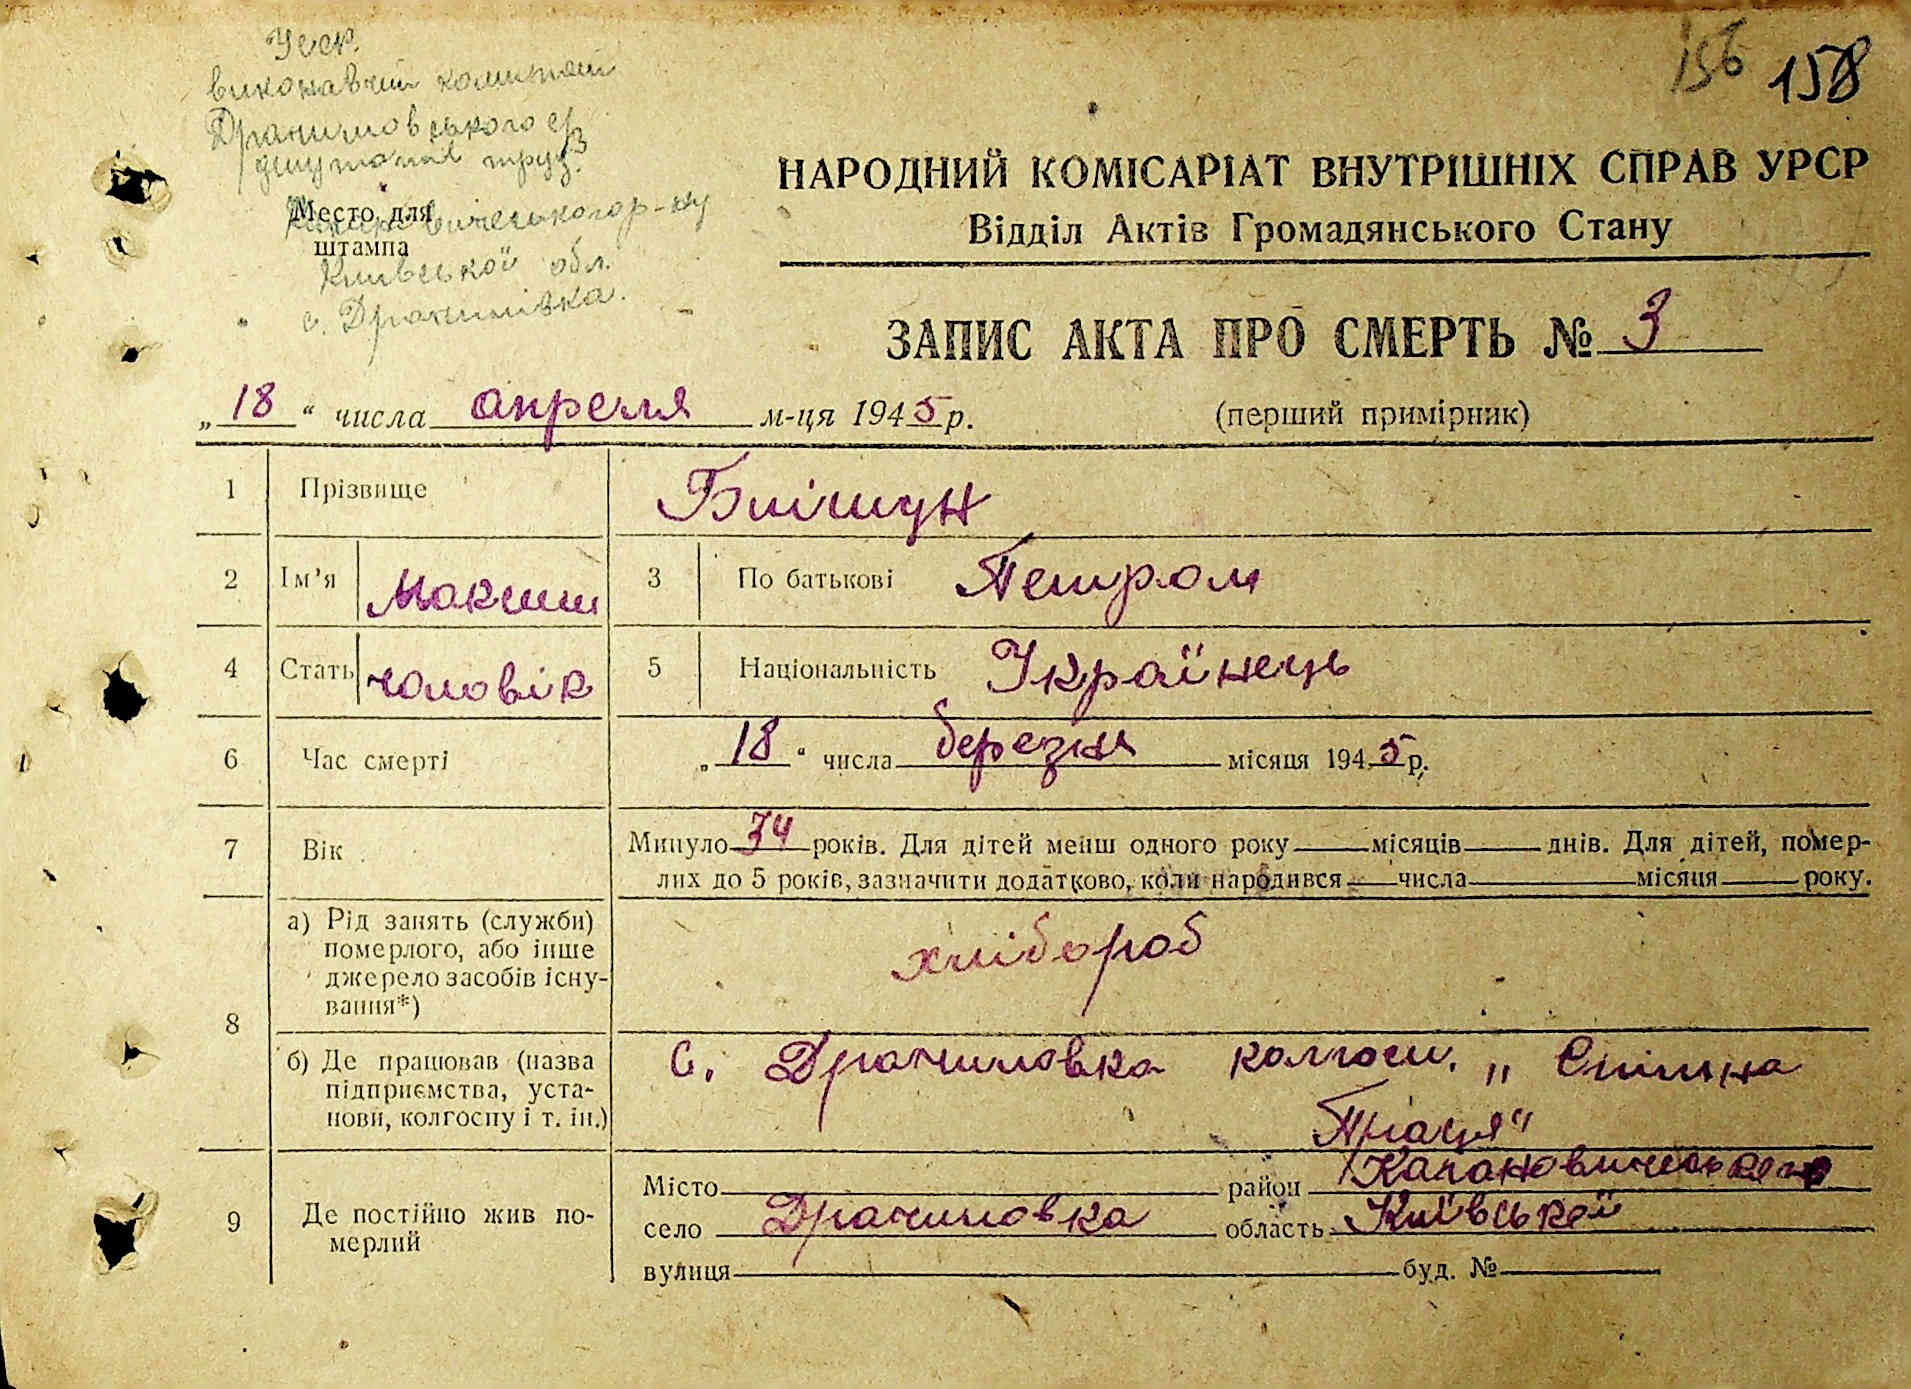 УССР.
виконавчий комитет
депутатів труд.
Київської обл.
Место для
штампа
156 158
НАРОДНИЙ КОМІСАРІАТ ВНУТРІШНІХ СПРАВ УРСР
Відділ Актів Громадянського Стану
ЗАПИС АКТА ПРО СМЕРТЬ № 3
„18“ числа апреля м-ця 1945 р. (перший примірник)
1 Прізвище
2 Ім’я Максим 3 По батькові Петром
4 Стать чоловік 5 Національність Українець
6 Час смерті „18“ числа березня місяця 1945 р.
7 Вік Минуло 34 років. Для дітей менш одного року місяців днів. Для дітей, помер-
лих до 5 років, зазначити додатково, коли народився числа місяця року.
8 а) Рід занять (служби)
померлого, або інше
джерело засобів існу-
вання*) хлібороб
б) Де працював (назва
підприємства, уста-
нови, колгоспу і т. ін.) С. Драчиловка колгосп. „Спільна
Праця“
9 Де постійно жив по-
мерлий
Місто район Кагановичського
село Драчиловка область Київської
вулиця буд. №